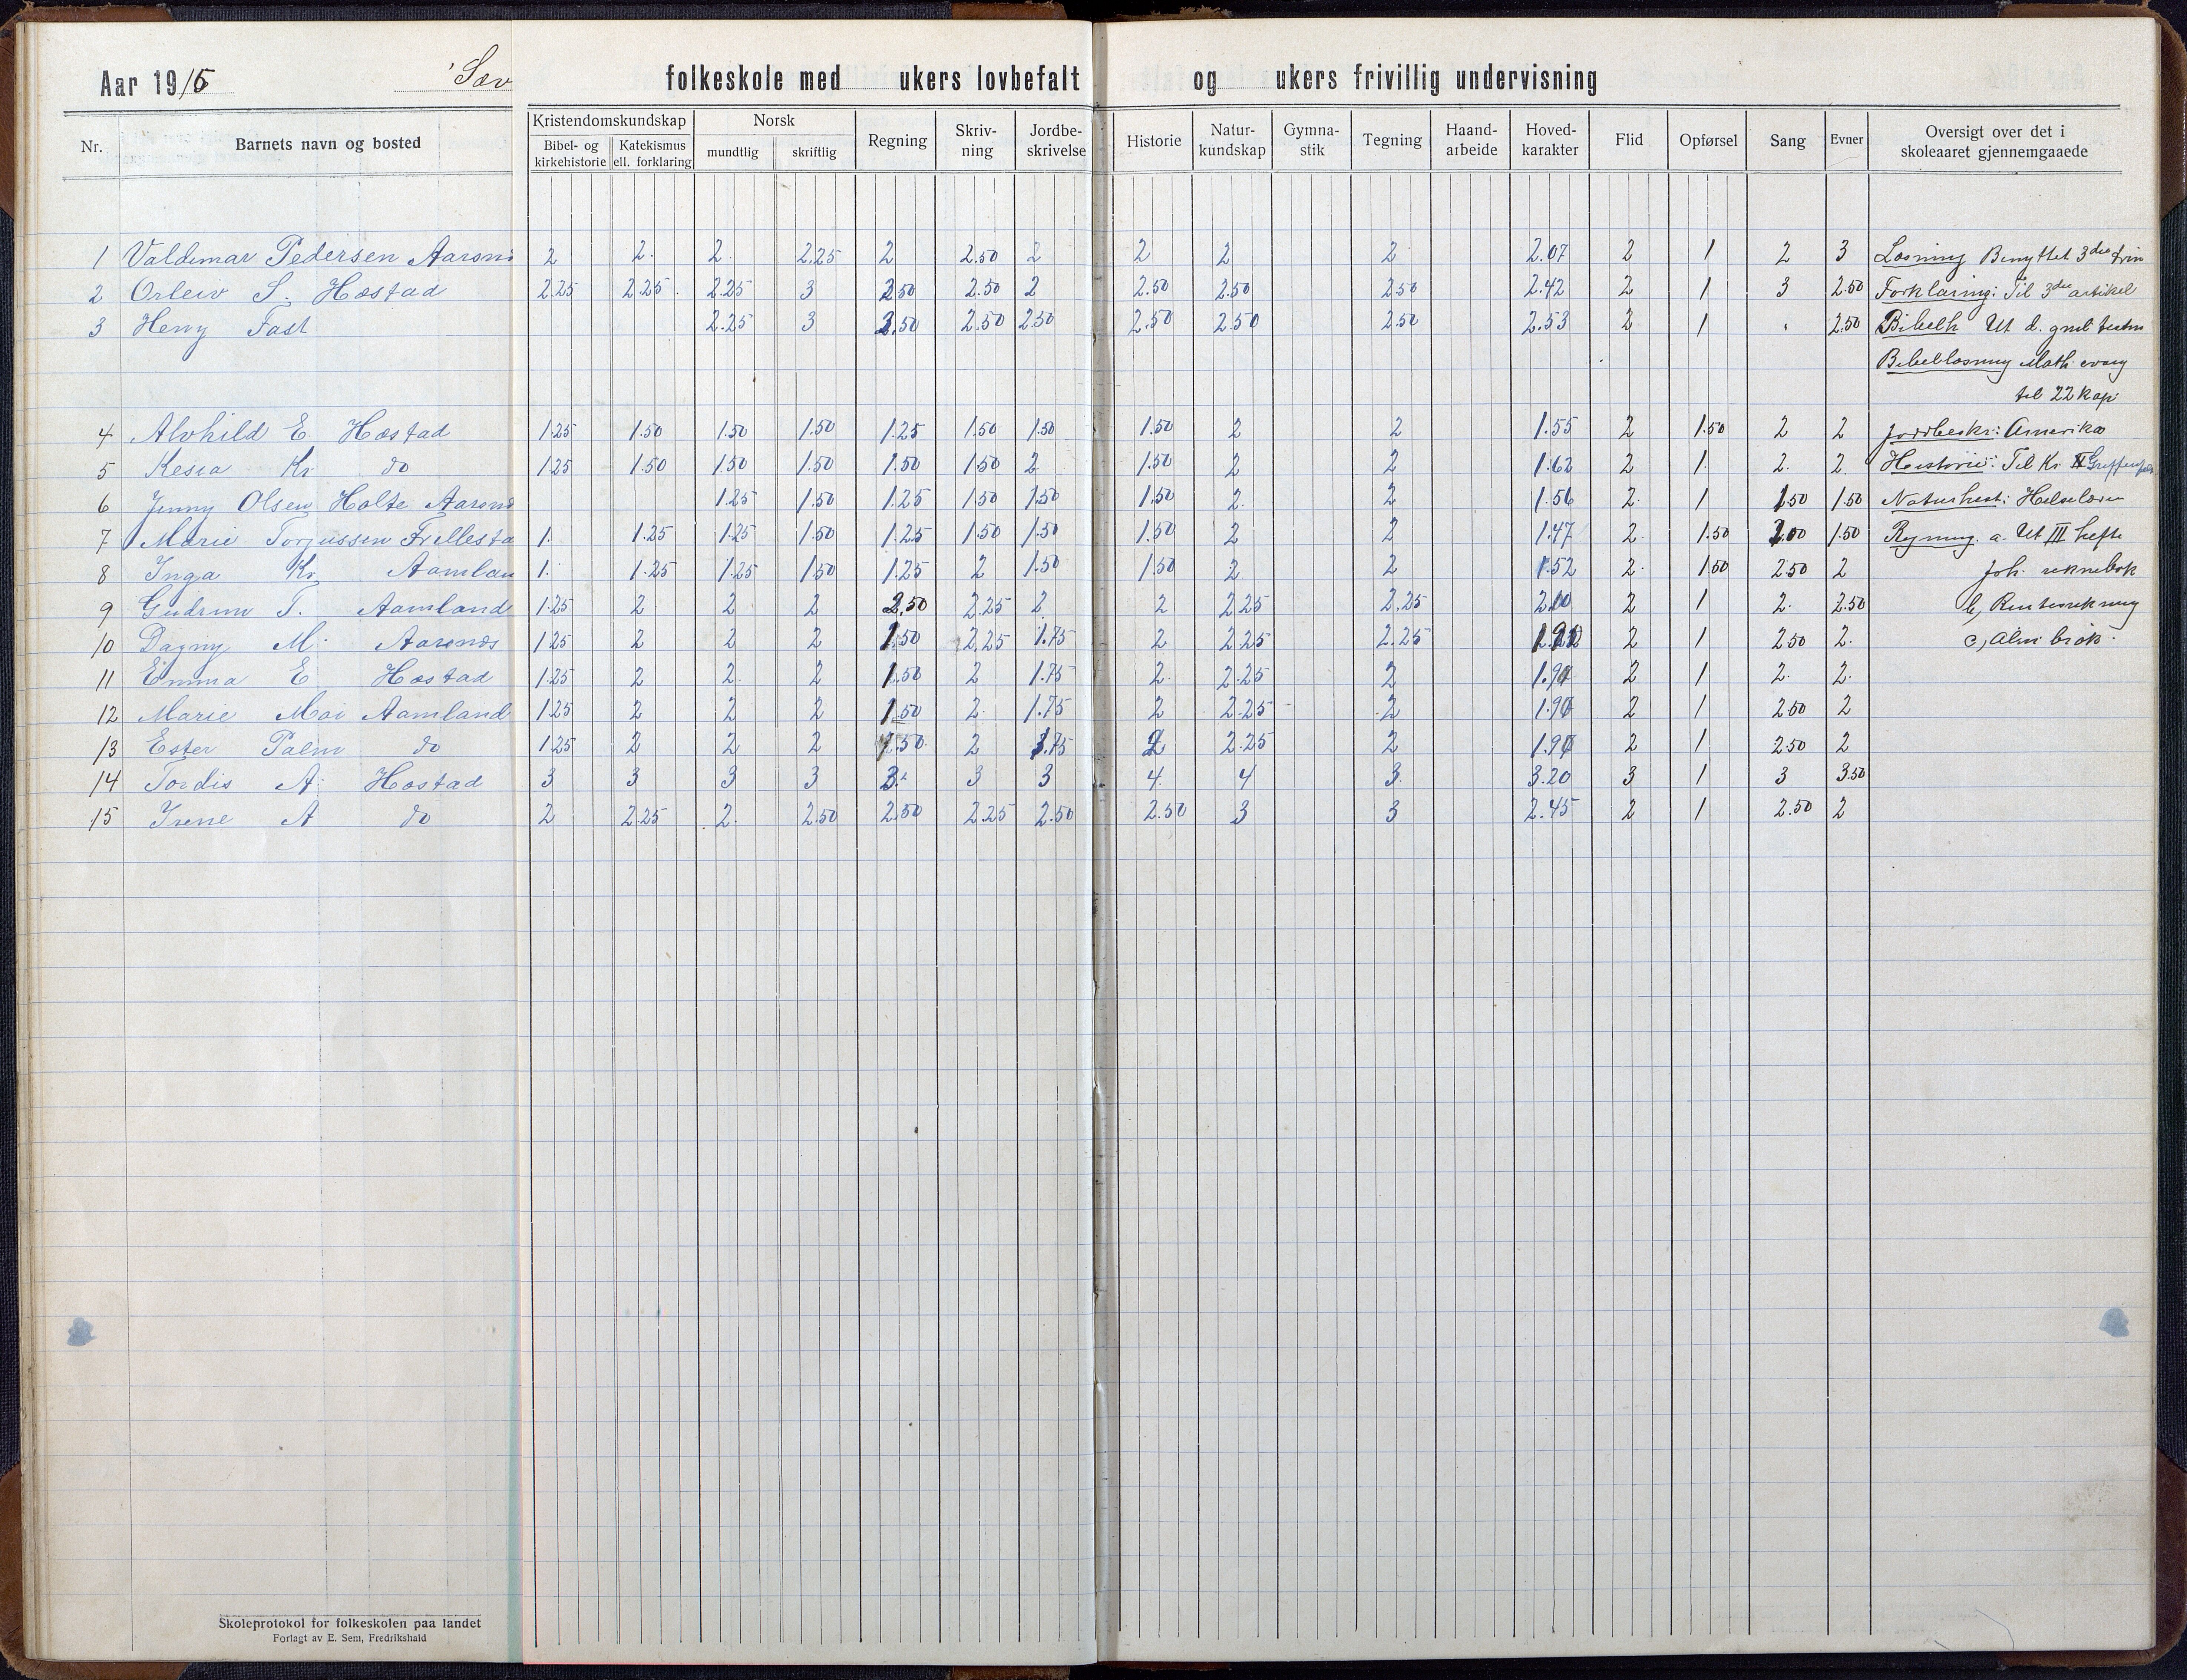 Aar 1915 Sæv folkeskole med ukers lovbefalt og ukers frivillig undervisning
Nr. Barnets navn og bosted Kristendomskundskap Norsk Regning Skriv-ning Jordbe-skrivelse Historie Natur-kundskap Gymna-stik Tegning Haand-arbeide Hoved-karakter Flid Opførsel Sang Evner Oversigt over det i skoleaaret gjennemgaaede
Bibel- og kirkehistorie Katekismus ell. forklaring mundtlig skriftlig
1 Valdemar Pedersen Aarsnes 2 2. 2. 2.25 2 2.50 2 2 2 2 2.07 2 1 2 3 Læsning Benyttet 3die trin
2 Orleiv S. Hæstad 2.25 2.25. 2.25 3 2.50 2.50 2 2.50 2.50 2.50 2.42 2 1 3 2.50 Forklaring: Til 3die artikel
3 Henry Fast 2.25 3 3.50 2.50 2.50 2.50 2.50 2.50 2.53 2 1 2.50 Bibelh Ut d. gml testm
Bibellæsning Math. evang
til 22 kap
4 Alvhild E. Hæstad 1.25 1.50 1.50 1.50 1.25 1.50 1.50 1.50 2 2 1.55 2 1.50 2 2 Jordbeskr: Amerika
5 Kesia Kr. do 1.25 1.50 1.50 1.50 1.50 1.50 2 1.50 2 2 1.62 2 1. 2. 2. Historie: Til Kr.
6 Jenny Olsen Holte Aarsnes 1.25 1.50 1.25 1.50 1.50 1.50 2. 2 1.56 2. 1 1.50 1.50 Naturhist: Helselæren
7 Marie Torjussen Frillesta 1. 1.25 1.25 1.50 1.25 1.50 1.50 1.50 2 2 1.47 2. 1.50 2.00 1.50 Regning. a. Ut III hefte
8 Inga Kr. Aamlan 1. 1.25 1.25 1.50 1.25 2 1.50 1.50 2 2 1.52 2. 1.50 2.50 2 Joh. reknebok
9 Gudrun T. Aamland 1.25 2 2 2 2.50 2.25 2 2 2.25 2.25 2.10 2 1 2. 2.50 b, Renteregning
10 Dagny M. Aarsnæs 1.25 2 2 2 1.50 2.25 1.75 2 2.25 2.25 2 1 2.50 2. c, Alm brøk.
11 Emma E Hæstad 1.25 2 2. 2 1.50 2 1.75 2. 2.25 2 1.90 2 1 2. 2.
12 Marie Moi Aamland 1.25 2 2 2 1.50 2. 1.75 2 2.25 2 1.90 2 1 2.50 2
13 Ester Palm do 1.25 2 2 2 1.50. 2 1.75 2 2.25 2 1.90 2 1 2.50 2
14 Tordis A. Hæstad 3 3 3 3 3. 3 3 4. 4 3. 3.20 3 1 3 3.50
15 Irene A do 2 2.25 2. 2.50 2.50 2.25 2.50 2.50 3 3 2.45 2 1 2.50 2
Skoleprotokol for folkeskolen paa landet
Forlagt av E. Sem, Fredrikshald